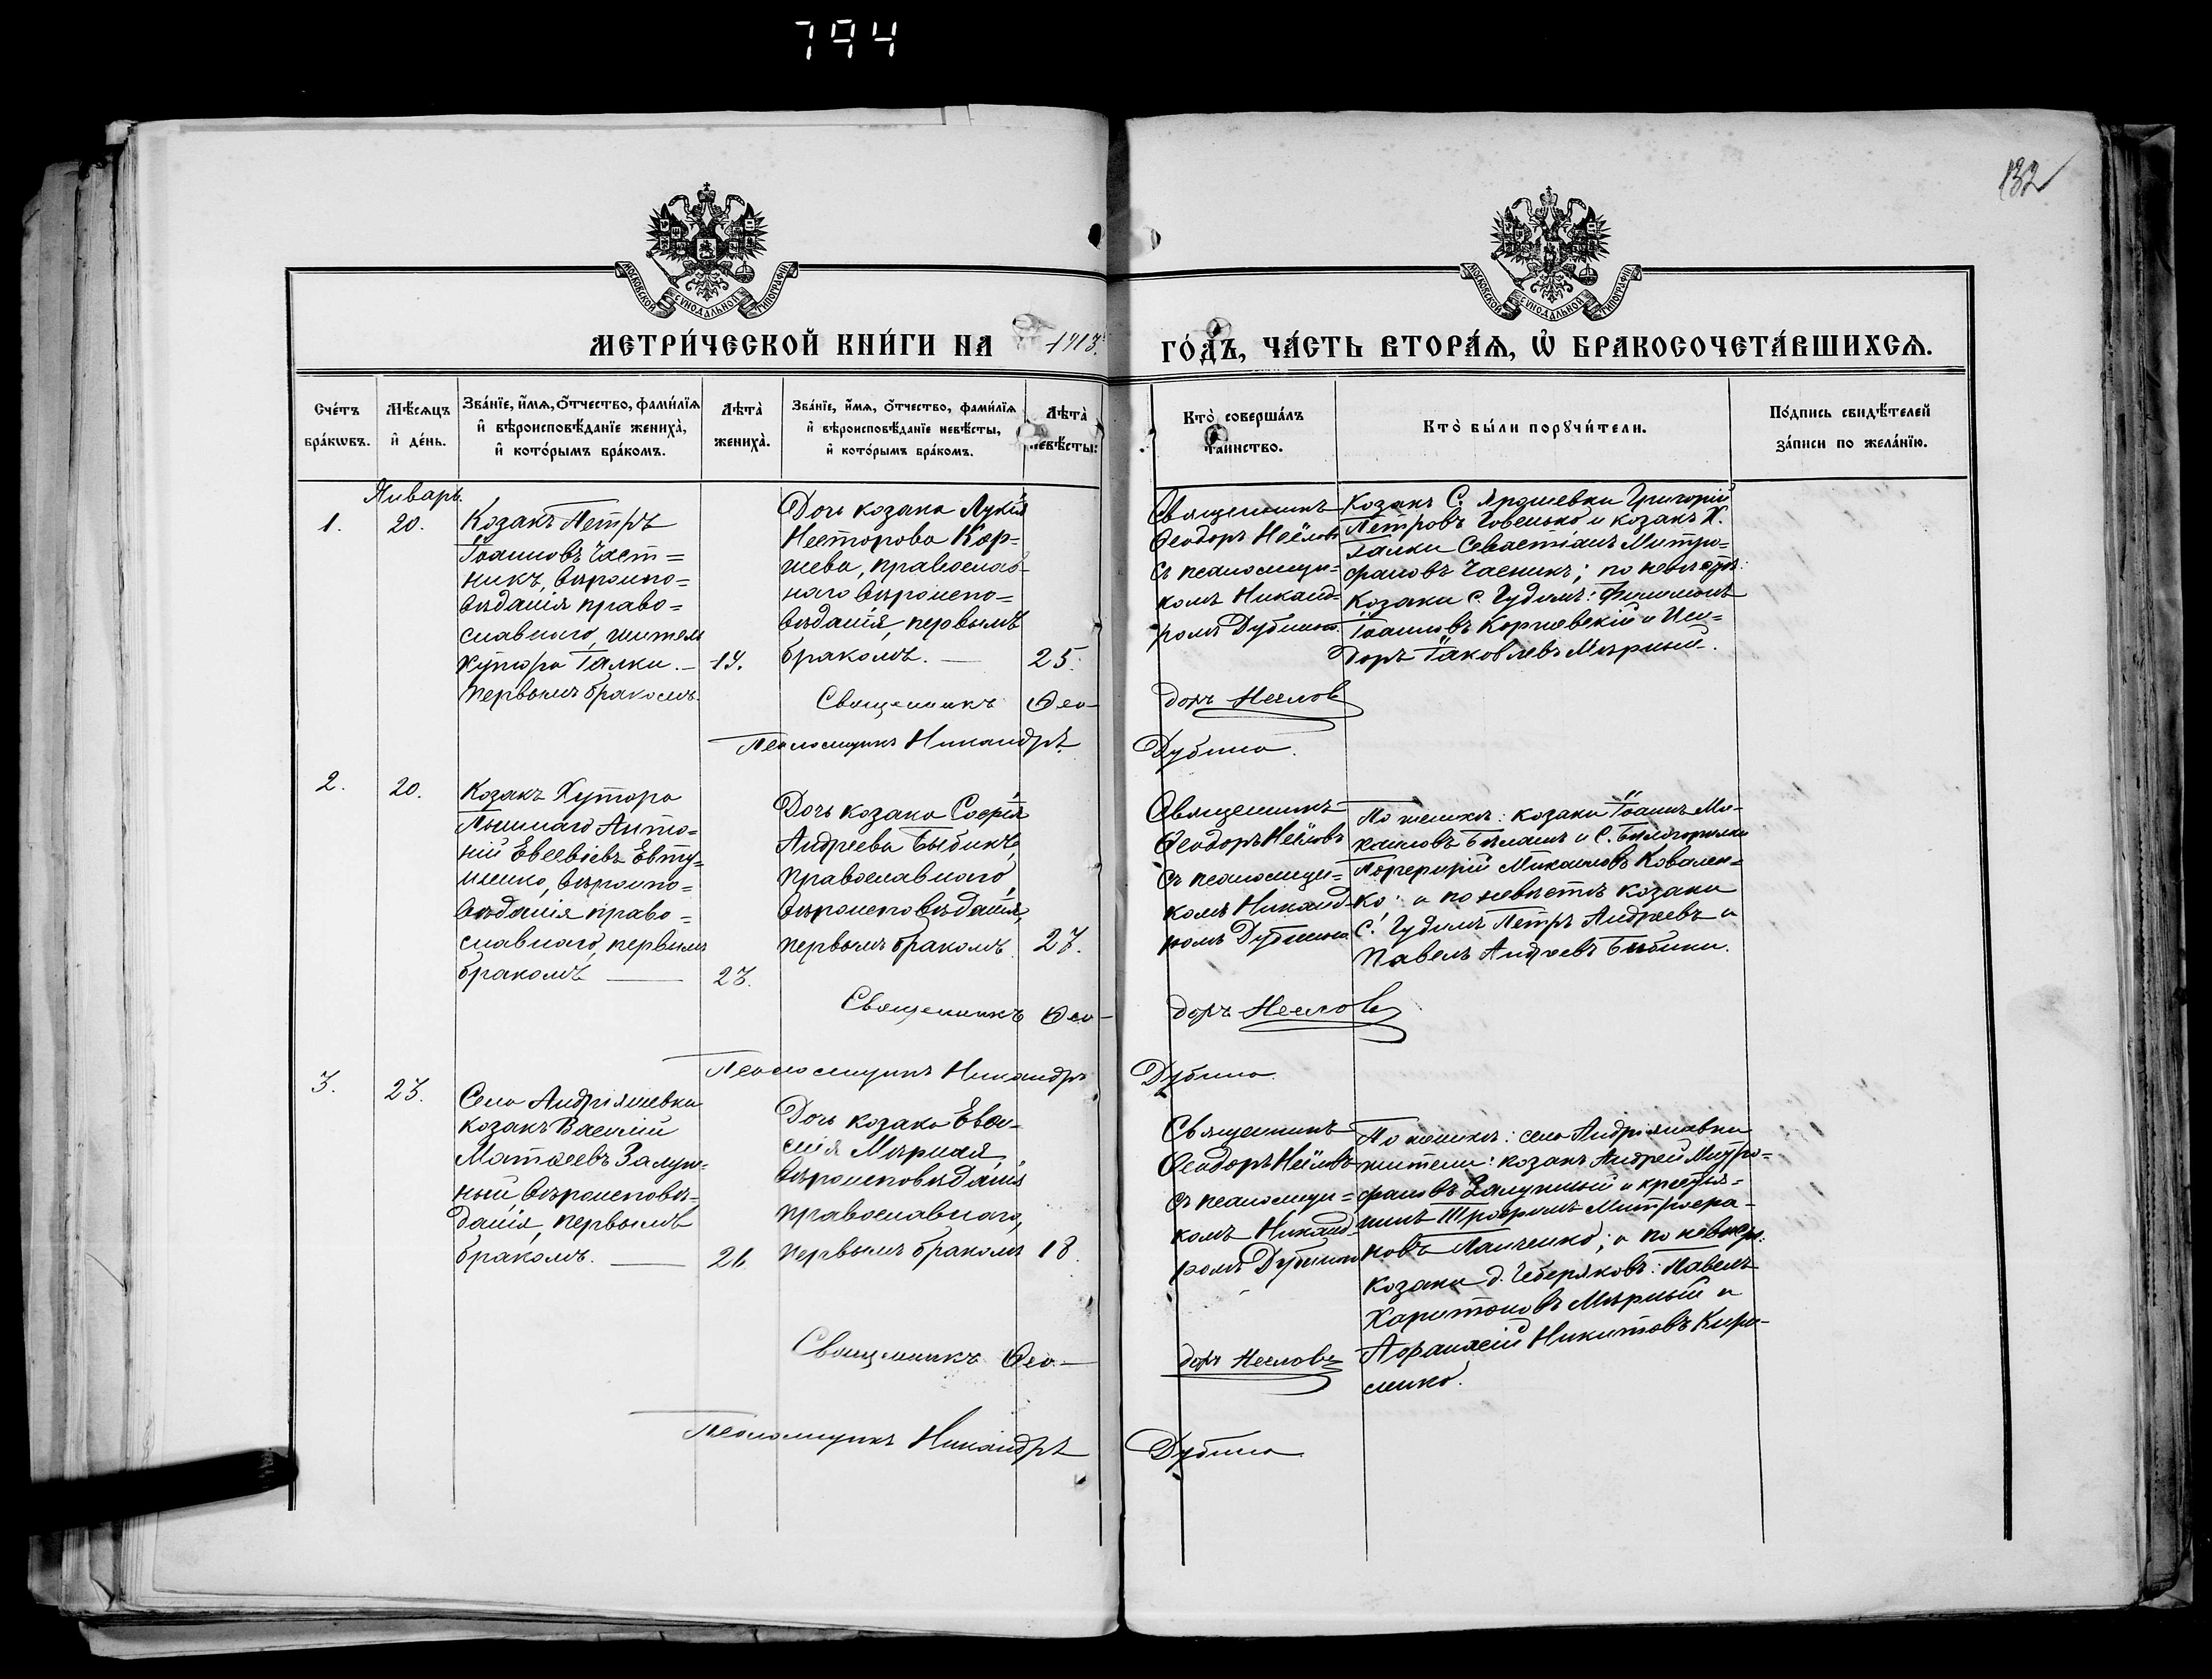 794
132
МОСКОВСКОЙ СѴНОДАЛЬНОЙ ТИПОГРАФІИ
МОСКОВСКОЙ СѴНОДАЛЬНОЙ ТИПОГРАФІИ
МЕТРИ́ЧЕСКОЙ КНИ́ГИ НА 1913 ГО́ДЪ, ЧА́СТЬ ВТОРА́Ѧ, Ѡ҆ БРАКОСОЧЕТА́ВШИХСѦ.
Сче́тъ бра́кѡвъ.
Мѣ́сѧцъ и҆ де́нь.
Зва́нїе, и҆́мѧ, ѻ҆́тчество, фами́лїѧ
и҆ вѣроисповѣ́данїе жениха̀,
и҆ кото́рымъ бра́комъ.
Лѣта̀ жениха̀.
Зва́нїе, и҆́мѧ, ѻ҆́тчество, фами́лїѧ
и҆ вѣроисповѣ́данїе невѣ́сты,
и҆ кото́рымъ бра́комъ.
Лѣта̀ невѣ́сты:
Кто̀ соверша́лъ та́инство.
Кто̀ бы́ли порꙋчи́тели.
По́дпись свидѣ́телей
за́писи по жела́нїю.
Январь.
1.
20.
Козакъ Петръ
Іоанновъ Част=
никъ, вѣроиспо=
вѣданія право=
славнаго, житель
хутора Галки. –
первымъ бракомъ.
19.
Дочь козака Лукія
Несторова Кор=
нева, православ-
наго вѣроиспо=
вѣданія, первымъ
бракомъ. —
25.
Священникъ
Ѳеодоръ Неѣловъ
съ псаломщи=
комъ Никанд=
ромъ Дубиною.
Козакъ С. Ярошевки Григорій
Петровъ Говенько и козакъ Х.
Галки Севастіанъ Митро=
фановъ Часникъ; по невѣстѣ:
Козаки с. Гудимъ: Филимонъ
Іоанновъ Корневскій и Иси=
доръ Іаковлевъ Мѣрный.
Священникъ Ѳео-
доръ Неѣлов
Псаломщикъ Никандръ
Дубина.
2.
20.
Козакъ Хутора
Пышнаго Анто=
ній Евсевіевъ Евту=
шенко, вѣроиспо=
вѣданія право=
славнаго, первымъ
бракомъ —
23.
Дочь козака Софія
Андреева Бибикъ,
православнаго
вѣроисповѣданія,
первымъ бракомъ.
27.
Священникъ
Ѳеодоръ Неѣловъ
съ псаломщи=
комъ Никанд-
ромъ Дубиною
По женихѣ: козаки Іоаннъ Ми-
хаиловъ и С. Бѣлогорилки
Порфирій Михаиловъ Ковален=
ко: и по невѣстѣ козаки
С. Гудимъ Петръ Андреевъ и
Павелъ Андреевъ Бибики.
Священникъ Ѳео-
доръ Неѣлов
Псаломщикъ Никандръ
Дубина.
3.
23.
Села Андріяшевки
козакъ Василій
Матѳеевъ Залуж-
ный, вѣроисповѣ-
данія, первымъ
бракомъ. —
21
Дочь козака Евѳи-
мія Мѣрная,
вѣроисповѣданія
православнаго,
первымъ бракомъ
18.
Священникъ
Ѳеодоръ Неѣловъ
съ псаломщи=
комъ Никанд-
ромъ Дубиною
По женихѣ: села Андріяшевки
жители: козакъ Андрей Митро=
фановъ Залужный и крестья=
нинъ Трофимъ Митрофа-
новъ Панченко; а по невѣстѣ:
козаки д. Чеберяковъ: Павелъ
Харитоновъ Мѣрный и
Афанасій Никитовъ Кири-
ленко.
Священникъ Ѳео-
доръ Неѣловъ
Псаломщикъ Никандръ
Дубина.